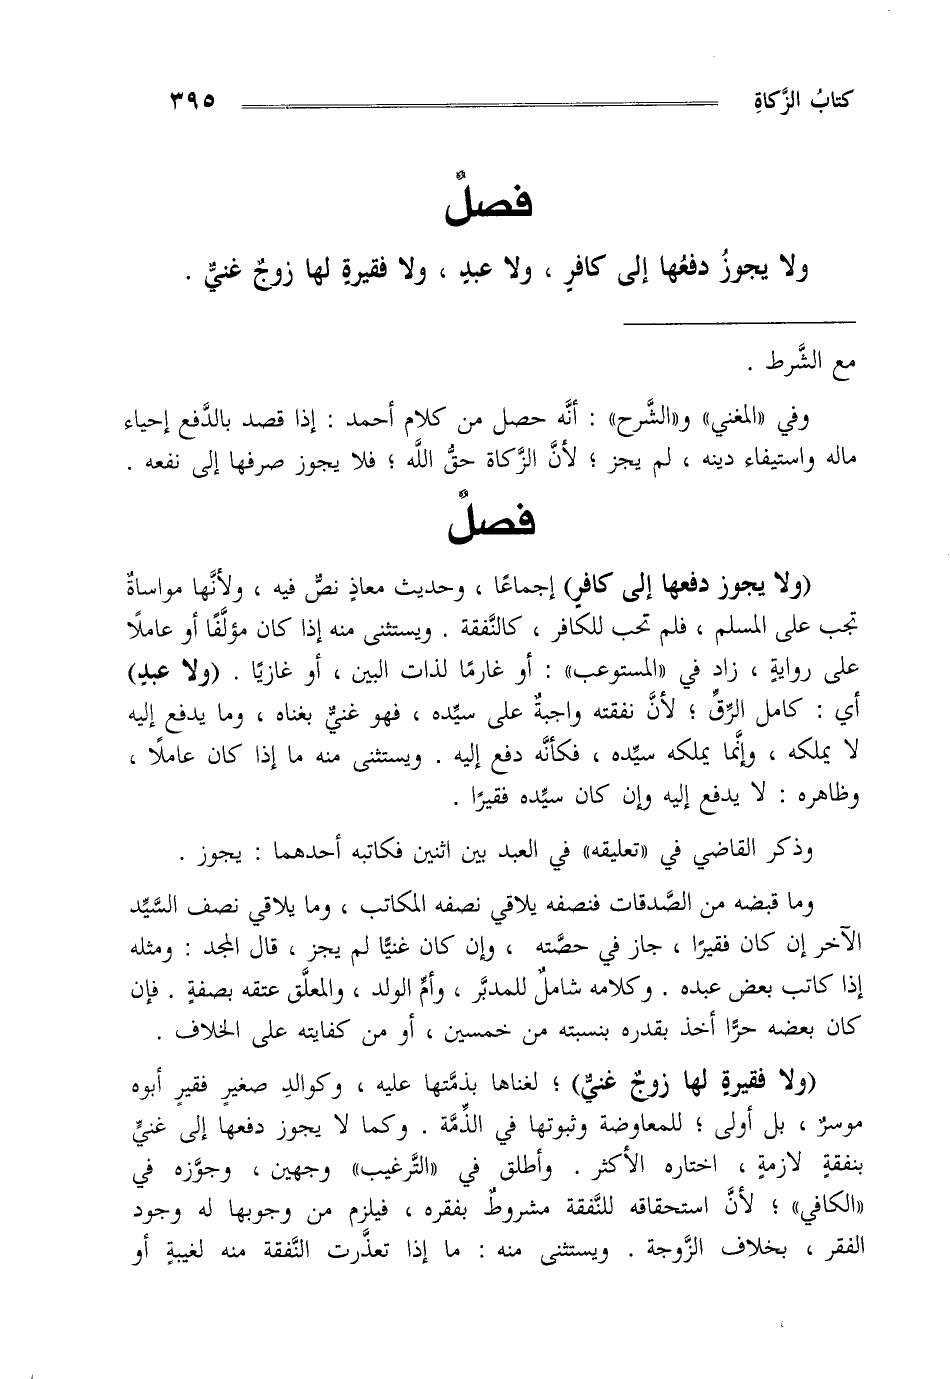 كتابُ الزَّكاةِ ٣٩٥
فصلٌ
ولا يجوزُ دفعُها إلى كافرٍ ، ولا عبدٍ ، ولا فقيرةٍ لها زوجٌ غنيٌّ .
مع الشَّرط .
وفي «المغني» و«الشَّرح» : أنَّه حصل من كلام أحمد : إذا قصد بالدَّفع إحياء
ماله واستيفاء دينه ، لم يجز ؛ لأنَّ الزَّكاة حقُّ اللَّه ؛ فلا يجوز صرفها إلى نفعه .
فصلٌ
(ولا يجوز دفعها إلى كافرٍ) إجماعًا ، وحديث معاذٍ نصٌّ فيه ، ولأنَّها مواساةٌ
تجب على المسلم ، فلم تجب للكافر ، كالنَّفقة . ويستثنى منه إذا كان مؤلَّفًا أو عاملًا
على روايةٍ ، زاد في «المستوعب» : أو غارمًا لذات البين ، أو غازيًا . (ولا عبدٍ)
أي : كامل الرِّقِّ ؛ لأنَّ نفقته واجبةٌ على سيِّده ، فهو غنيٌّ بغناه ، وما يدفع إليه
لا يملكه ، وإنَّما يملكه سيِّده ، فكأنَّه دفع إليه . ويستثنى منه ما إذا كان عاملًا ،
وظاهره : لا يدفع إليه وإن كان سيِّده فقيرًا .
وذكر القاضي في «تعليقه» في العبد بين اثنين فكاتبه أحدهما : يجوز .
وما قبضه من الصَّدقات فنصفه يلاقي نصفه المكاتب ، وما يلاقي نصف السَّيِّد
الآخر إن كان فقيرًا ، جاز في حصَّته ، وإن كان غنيًّا لم يجز ، قال المجد : ومثله
إذا كاتب بعض عبده . وكلامه شاملٌ للمدبَّر ، وأمِّ الولد ، والمعلَّق عتقه بصفةٍ . فإن
كان بعضه حرًّا أخذ بقدره بنسبته من خمسين ، أو من كفايته على الخلاف .
(ولا فقيرةٍ لها زوجٌ غنيٌّ) ؛ لغناها بذمَّتها عليه ، وكوالدِ صغيرٍ فقيرٍ أبوه
موسرٌ ، بل أولى ؛ للمعاوضة وثبوتها في الذِّمَّة . وكما لا يجوز دفعها إلى غنيٍّ
بنفقةٍ لازمةٍ ، اختاره الأكثر . وأطلق في «التَّرغيب» وجهين ، وجوَّزه في
«الكافي» ؛ لأنَّ استحقاقه للنَّفقة مشروطٌ بفقره ، فيلزم من وجوبها له وجود
الفقر ، بخلاف الزَّوجة . ويستثنى منه : ما إذا تعذَّرت النَّفقة منه لغيبةٍ أو